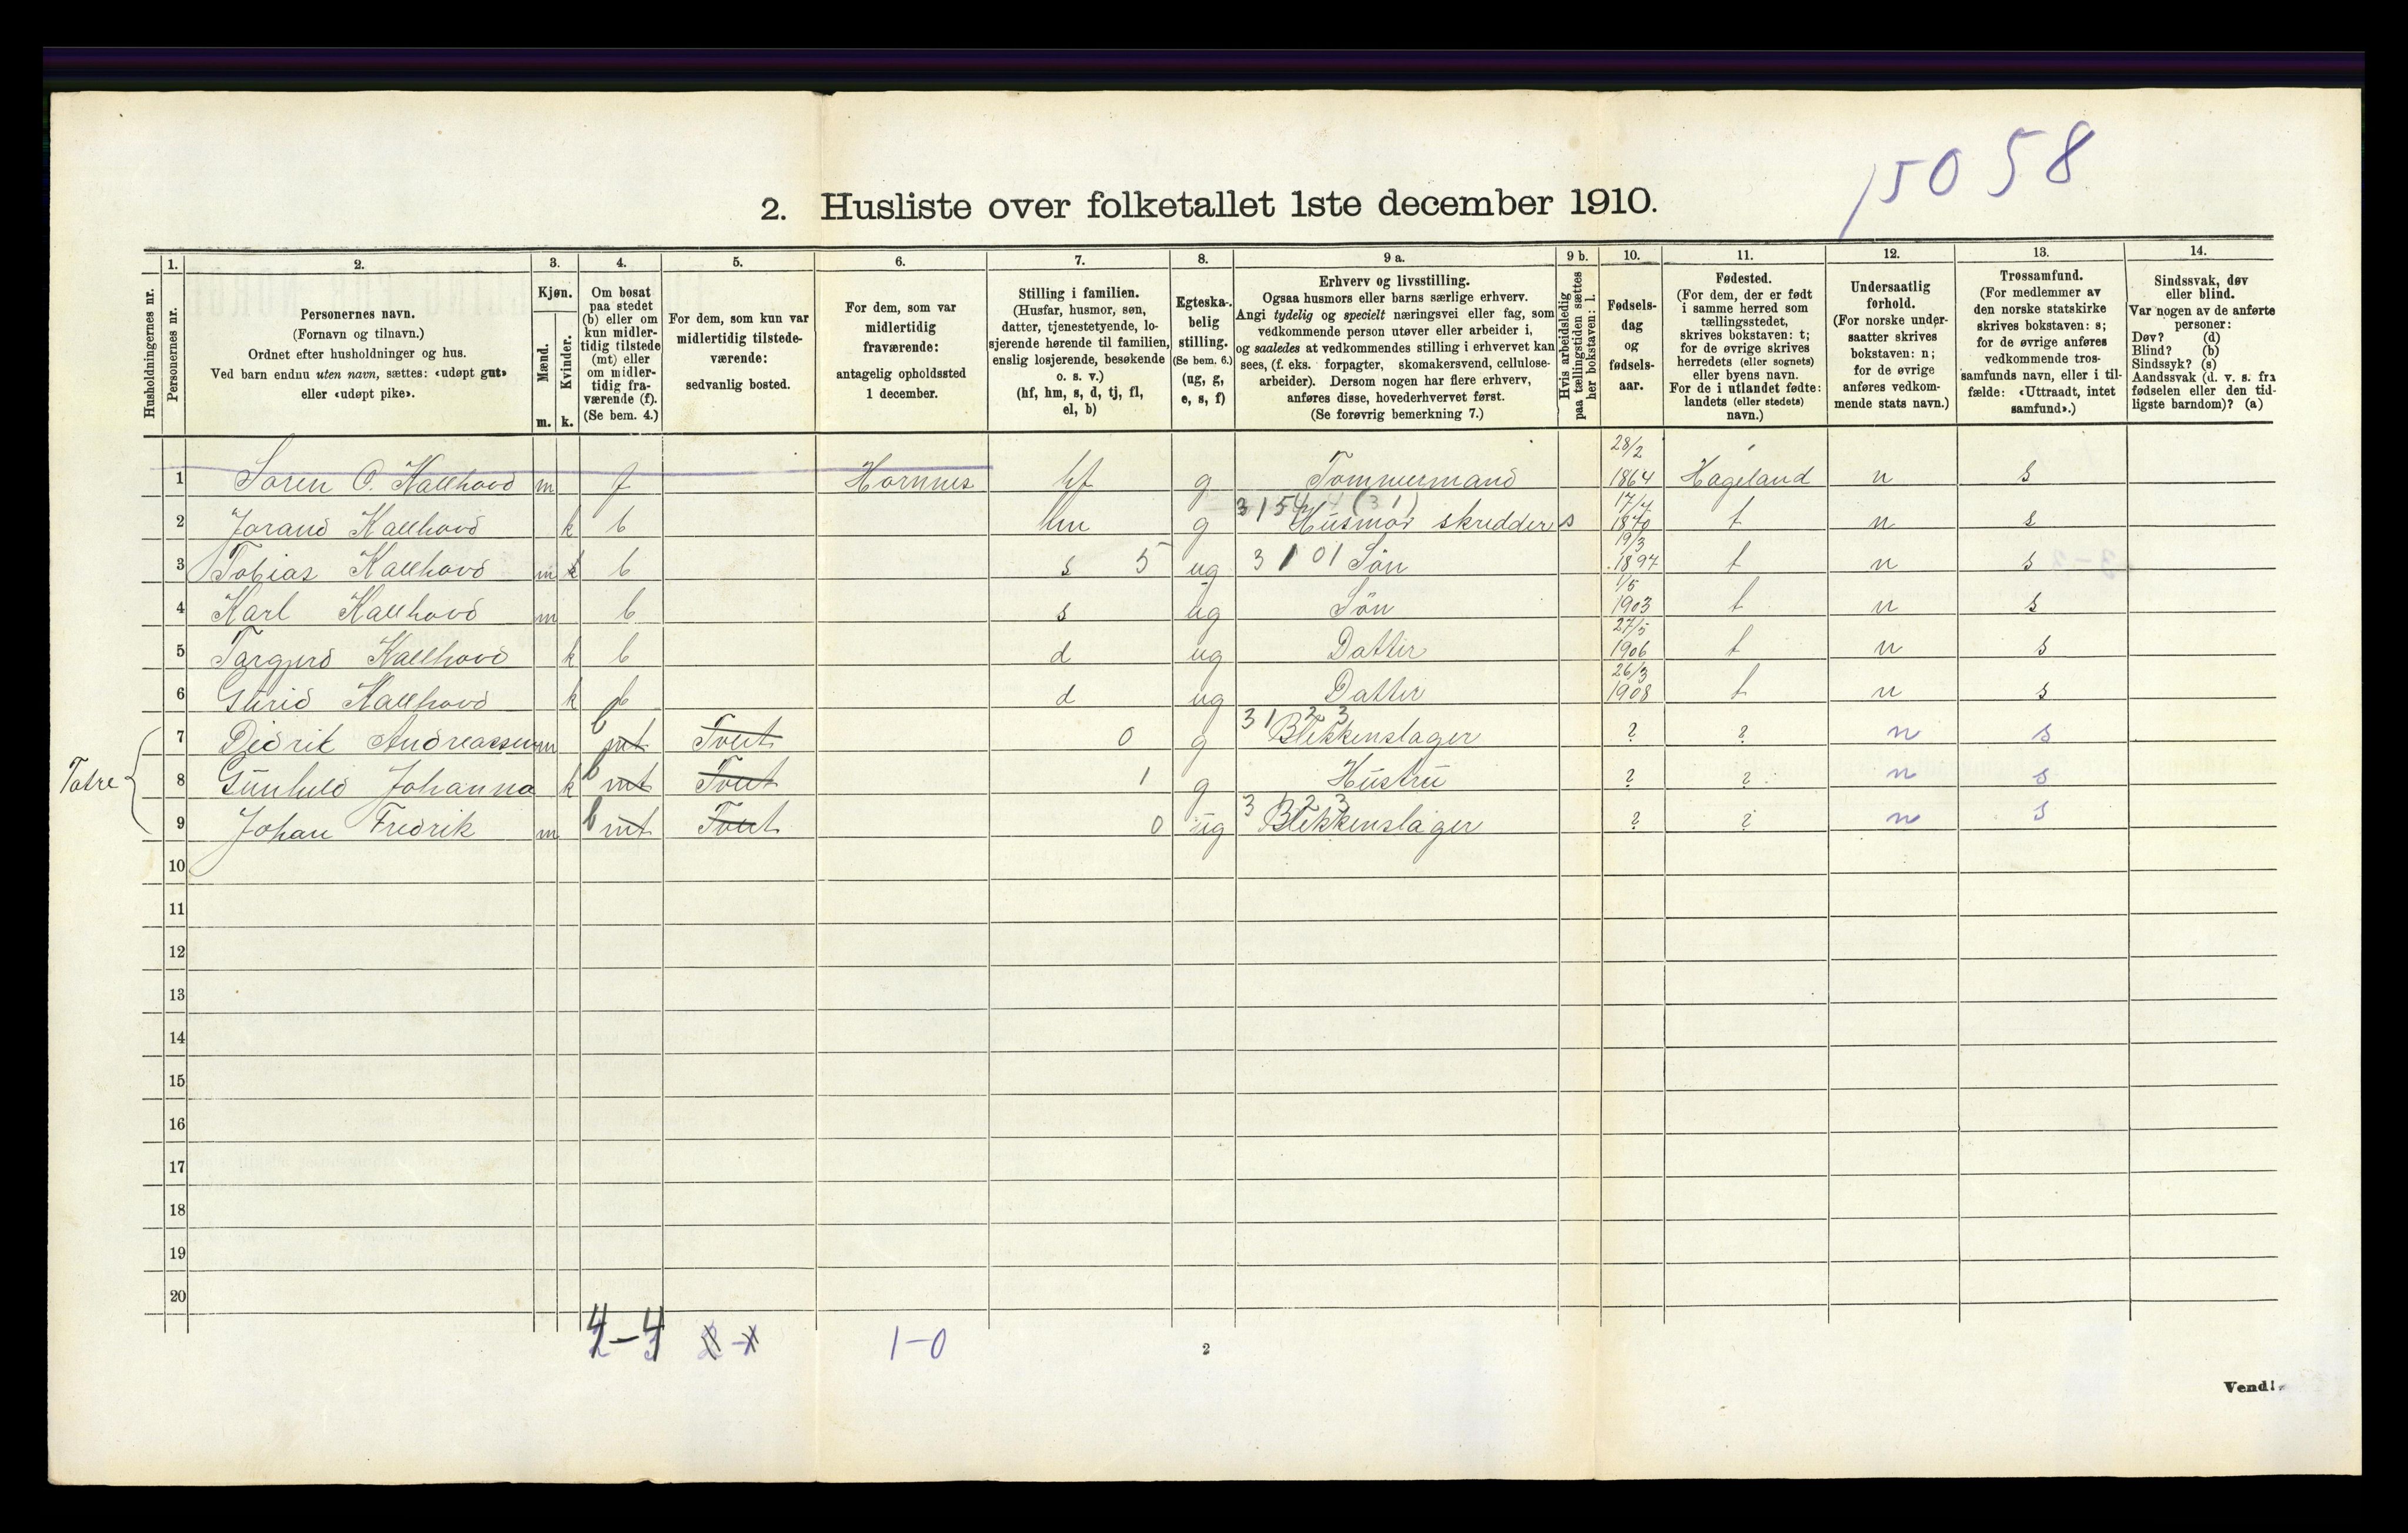 15058
2. Husliste over folketallet 1ste december 1910.
Husholdningernes nr.
1. Personernes nr.
2. Personernes navn.
(Fornavn og tilnavn.)
Ordnet efter husholdninger og hus.
Ved barn endnu uten navn, sættes: «udøpt gut»
eller «udøpt pike».
3. Kjøn.
Mænd. m.
Kvinder. k.
4. Om bosat
paa stedet
(b) eller om
kun midler-
tidig tilstede
(mt) eller
om midler-
tidig fra-
værende (f).
(Se bem. 4.)
5. For dem, som kun var
midlertidig tilstede-
værende:
sedvanlig bosted.
6. For dem, som var
midlertidig
fraværende:
antagelig opholdssted
1 december.
7. Stilling i familien.
(Husfar, husmor, søn,
datter, tjenestetyende, lo-
sjerende hørende til familien,
enslig losjerende, besøkende
o. s. v.)
(hf, hm, s, d, tj, fl,
el, b)
8. Egteska-
belig
stilling.
(Se bem. 6.)
(ug, g,
e, s, f)
9 a. Erhverv og livsstilling.
Ogsaa husmors eller barns særlige erhverv.
Angi tydelig og specielt næringsvei eller fag, som
vedkommende person utøver eller arbeider i,
og saaledes at vedkommendes stilling i erhvervet kan
sees, (f. eks. forpagter, skomakersvend, cellulose-
arbeider). Dersom nogen har flere erhverv,
anføres disse, hovederhvervet først.
(Se forøvrig bemerkning 7.)
9 b. Hvis arbeidsledig
paa tællingstiden sættes
her bokstaven: l.
10. Fødsels-
dag
og
fødsels-
aar.
11. Fødested.
(For dem, der er født
i samme herred som
tællingsstedet,
skrives bokstaven: t;
for de øvrige skrives
herredets (eller sognets)
eller byens navn.
For de i utlandet fødte:
landets (eller stedets)
navn.)
12. Undersaatlig
forhold.
(For norske under-
saatter skrives
bokstaven: n;
for de øvrige
anføres vedkom-
mende stats navn.)
13. Trossamfund.
(For medlemmer av
den norske statskirke
skrives bokstaven: s;
for de øvrige anføres
vedkommende tros-
samfunds navn, eller i til-
fælde: «Uttraadt, intet
samfund».)
14. Sindssvak, døv
eller blind.
Var nogen av de anførte
personer:
Døv? (d)
Blind? (b)
Sindssyk? (s)
Aandssvak (d. v. s. fra
fødselen eller den tid-
ligste barndom)? (a)
1 Soren O. Kallhovd m f Hornnes hf g Tommermand 28/2 1864 Hægeland n s
2 Jorand Kallhovd k b hm g 3154 4 (31) Husmor skredder s 17/4 1870 t n s
3 Tobias Kallhovd m k b s 5 ug 3101 Sön 19/3 1897 t n s
4 Karl Kallhovd m b s ug Sön 1/5 1903 t n s
5 Torgjerd Kallhovd k b d ug Datter 27/5 1906 t n s
6 Gurid Kallhovd k b d ug Datter 26/3 1908 t n s
Tatre
7 Didrik Andreassen m b mt Tveit 0 g 3123 Blekkenslager ? ? n s
8 Gunhild Johanna k b mt Tveit 1 g Hustru ? ? n s
9 Johan Fredrik m b mt Tveit 0 ug 3123 Blekkenslager ? ? n s
10
11
12
13
14
15
16
17
18
19
20
4-4 1-0
2
Vend!